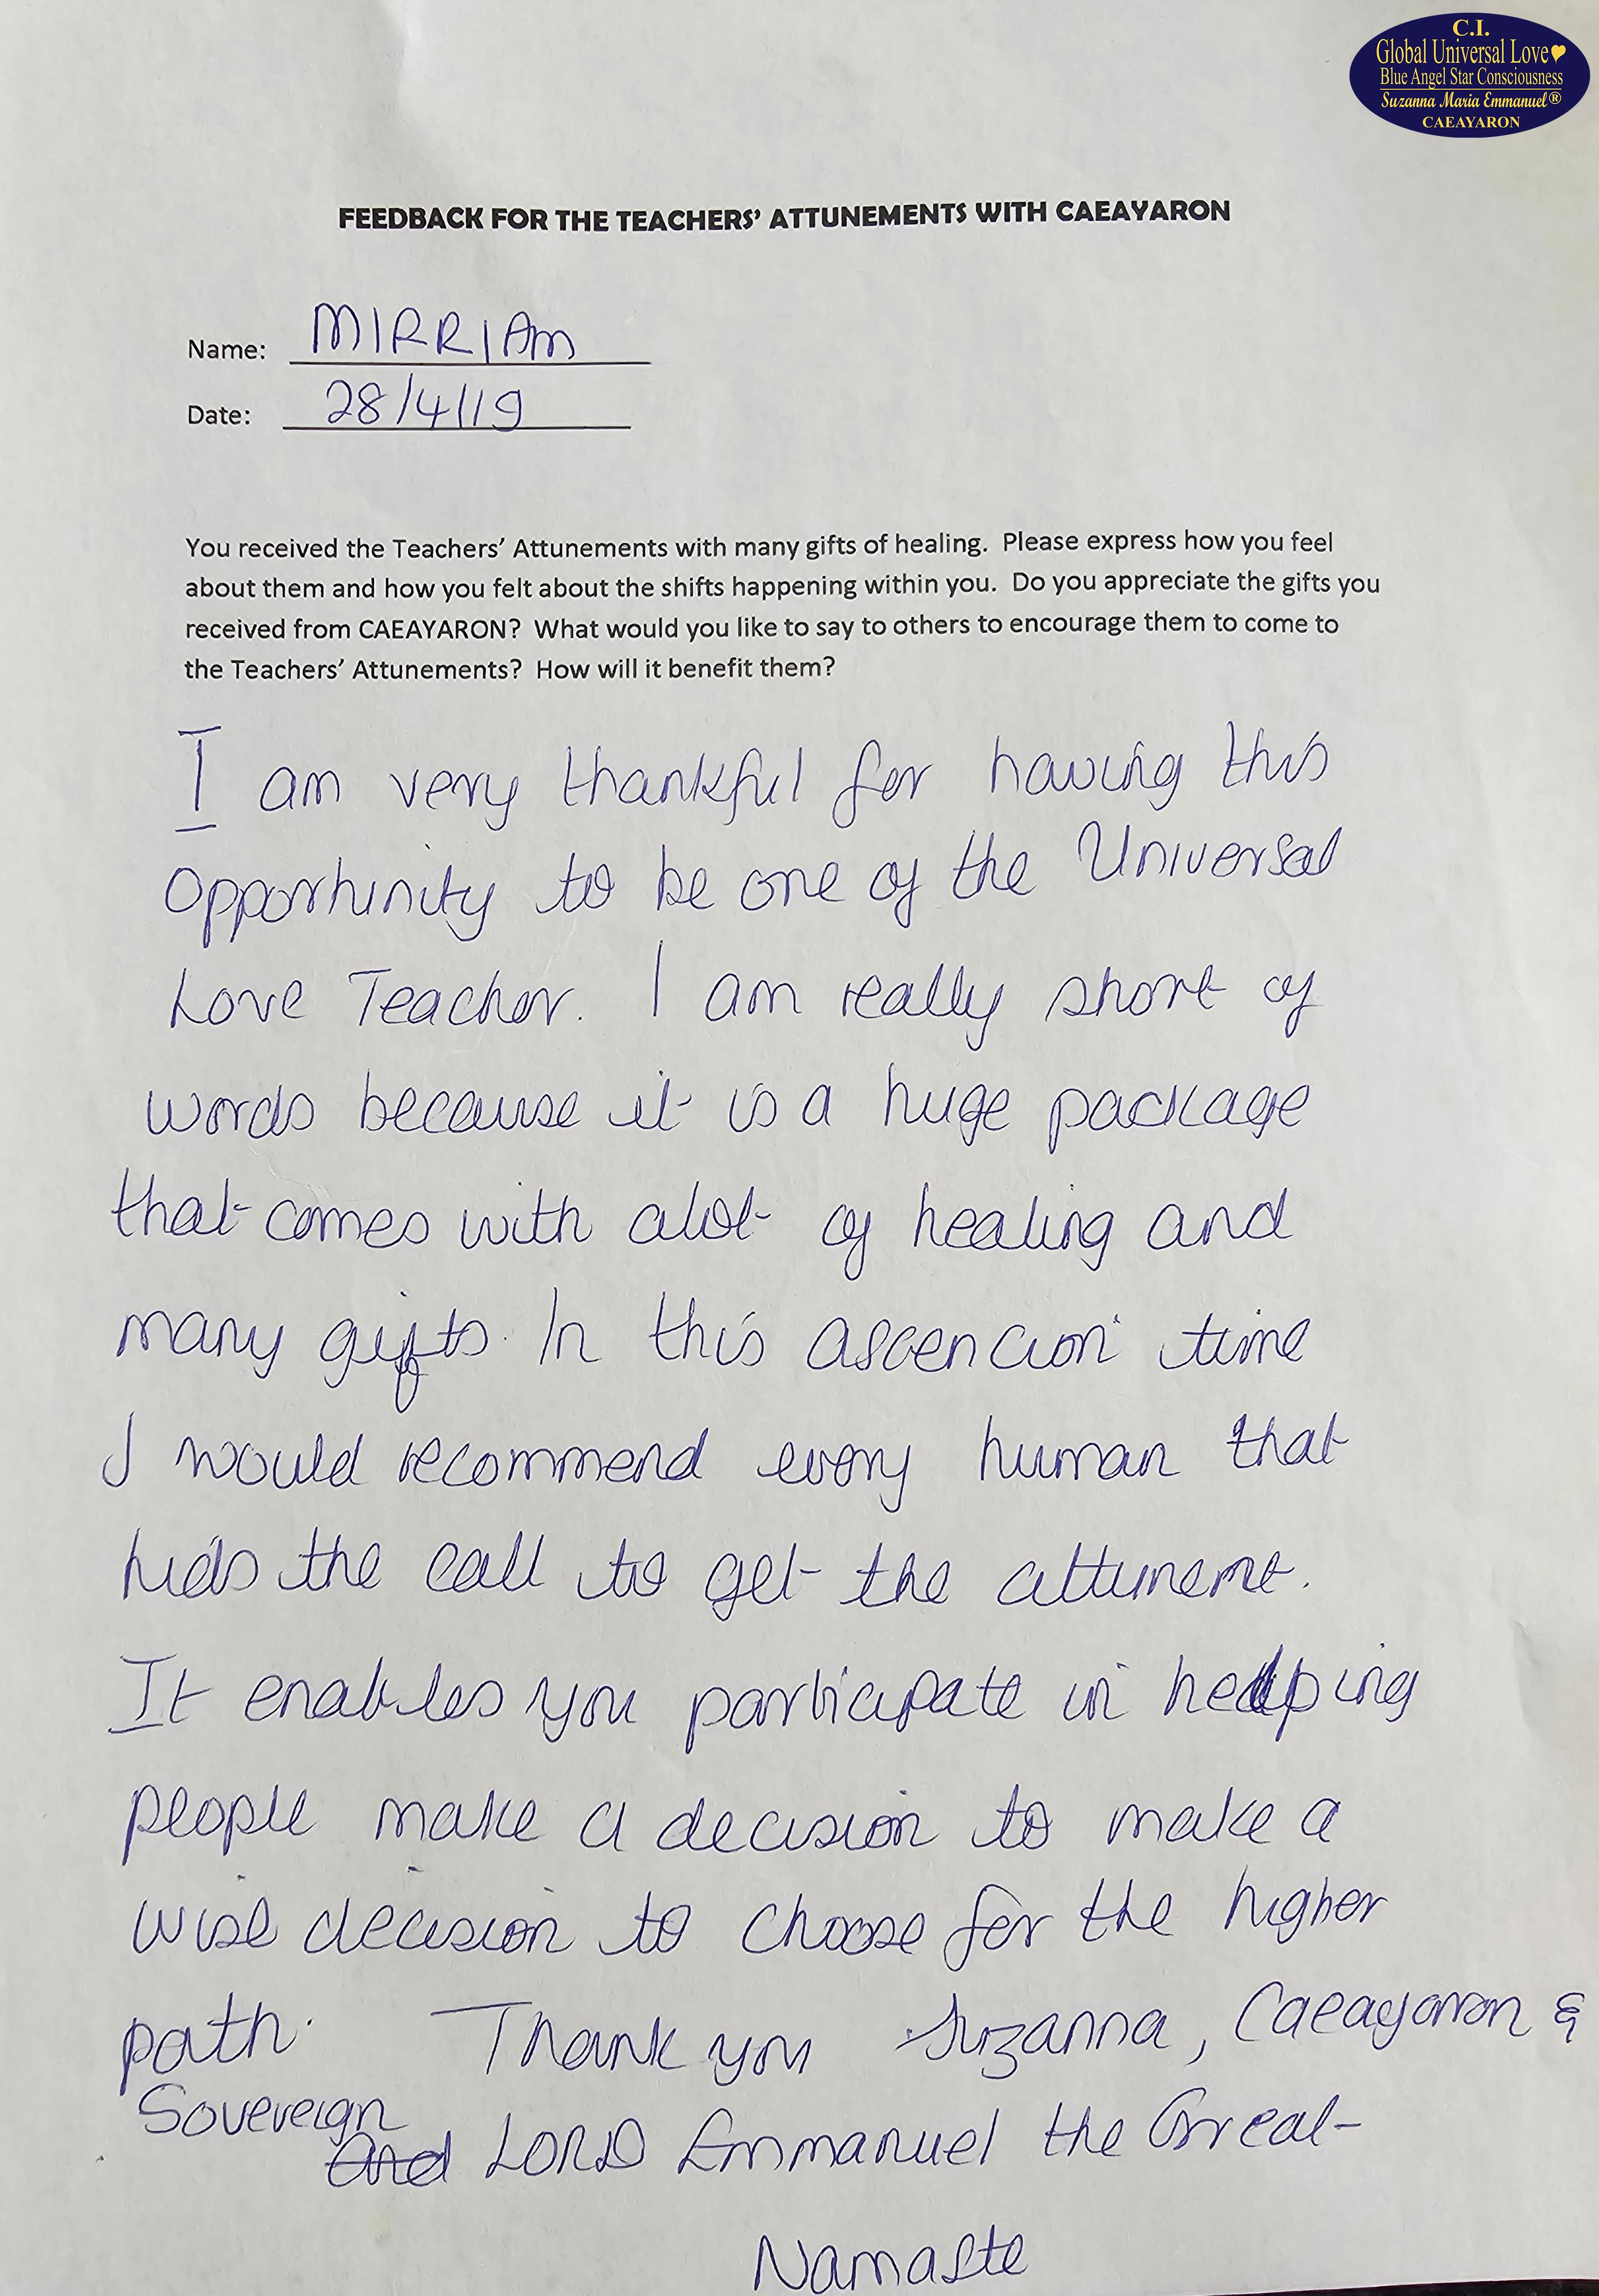 C.I.
Global Universal Love
Blue Angel Star Consciousness
Suzanna Maria Emmanuel®
CAEAYARON
FEEDBACK FOR THE TEACHERS' ATTUNEMENTS WITH CAEAYARON
Name: MIRRIAM
Date: 28/4/19
You received the Teachers' Attunements with many gifts of healing. Please express how you feel
about them and how you felt about the shifts happening within you. Do you appreciate the gifts you
received from CAEAYARON? What would you like to say to others to encourage them to come to
the Teachers' Attunements? How will it benefit them?
I am very thankful for having this
opportunity to be one of the Universal
Love Teacher. I am really short of
words because it is a huge package
that comes with alot of healing and
many gifts. In this ascencion time
I would recommend every human that
the call to get the attunement.
It enables you participate in helping
people make a decision to make a
wise decision to choose for the higher
path. Thank you Suzanna, Caeayaron &
Sovereign
and LORD Emmanuel the Great
Namaste